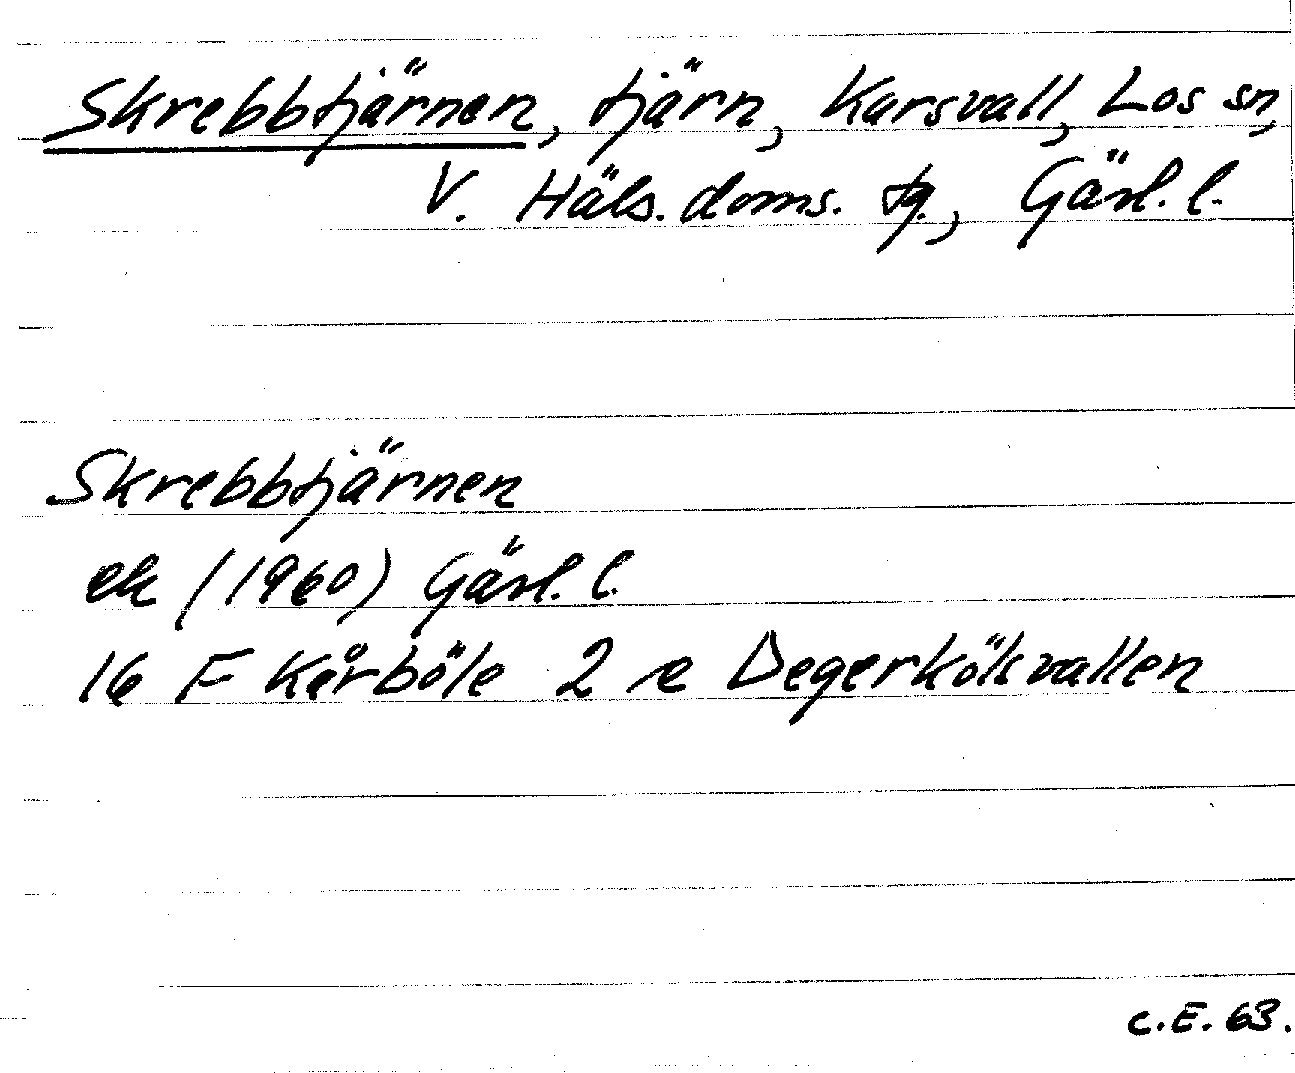 Skrebbtjärnen, tjärn, Karsvall, Los sn,
V. Häls. doms. tg., Gävl. l.
Skrebbtjärnen
ek (1960) Gävl. l.
16 F Kårböle 2 e Degerkölsvallen
C.E. 63.